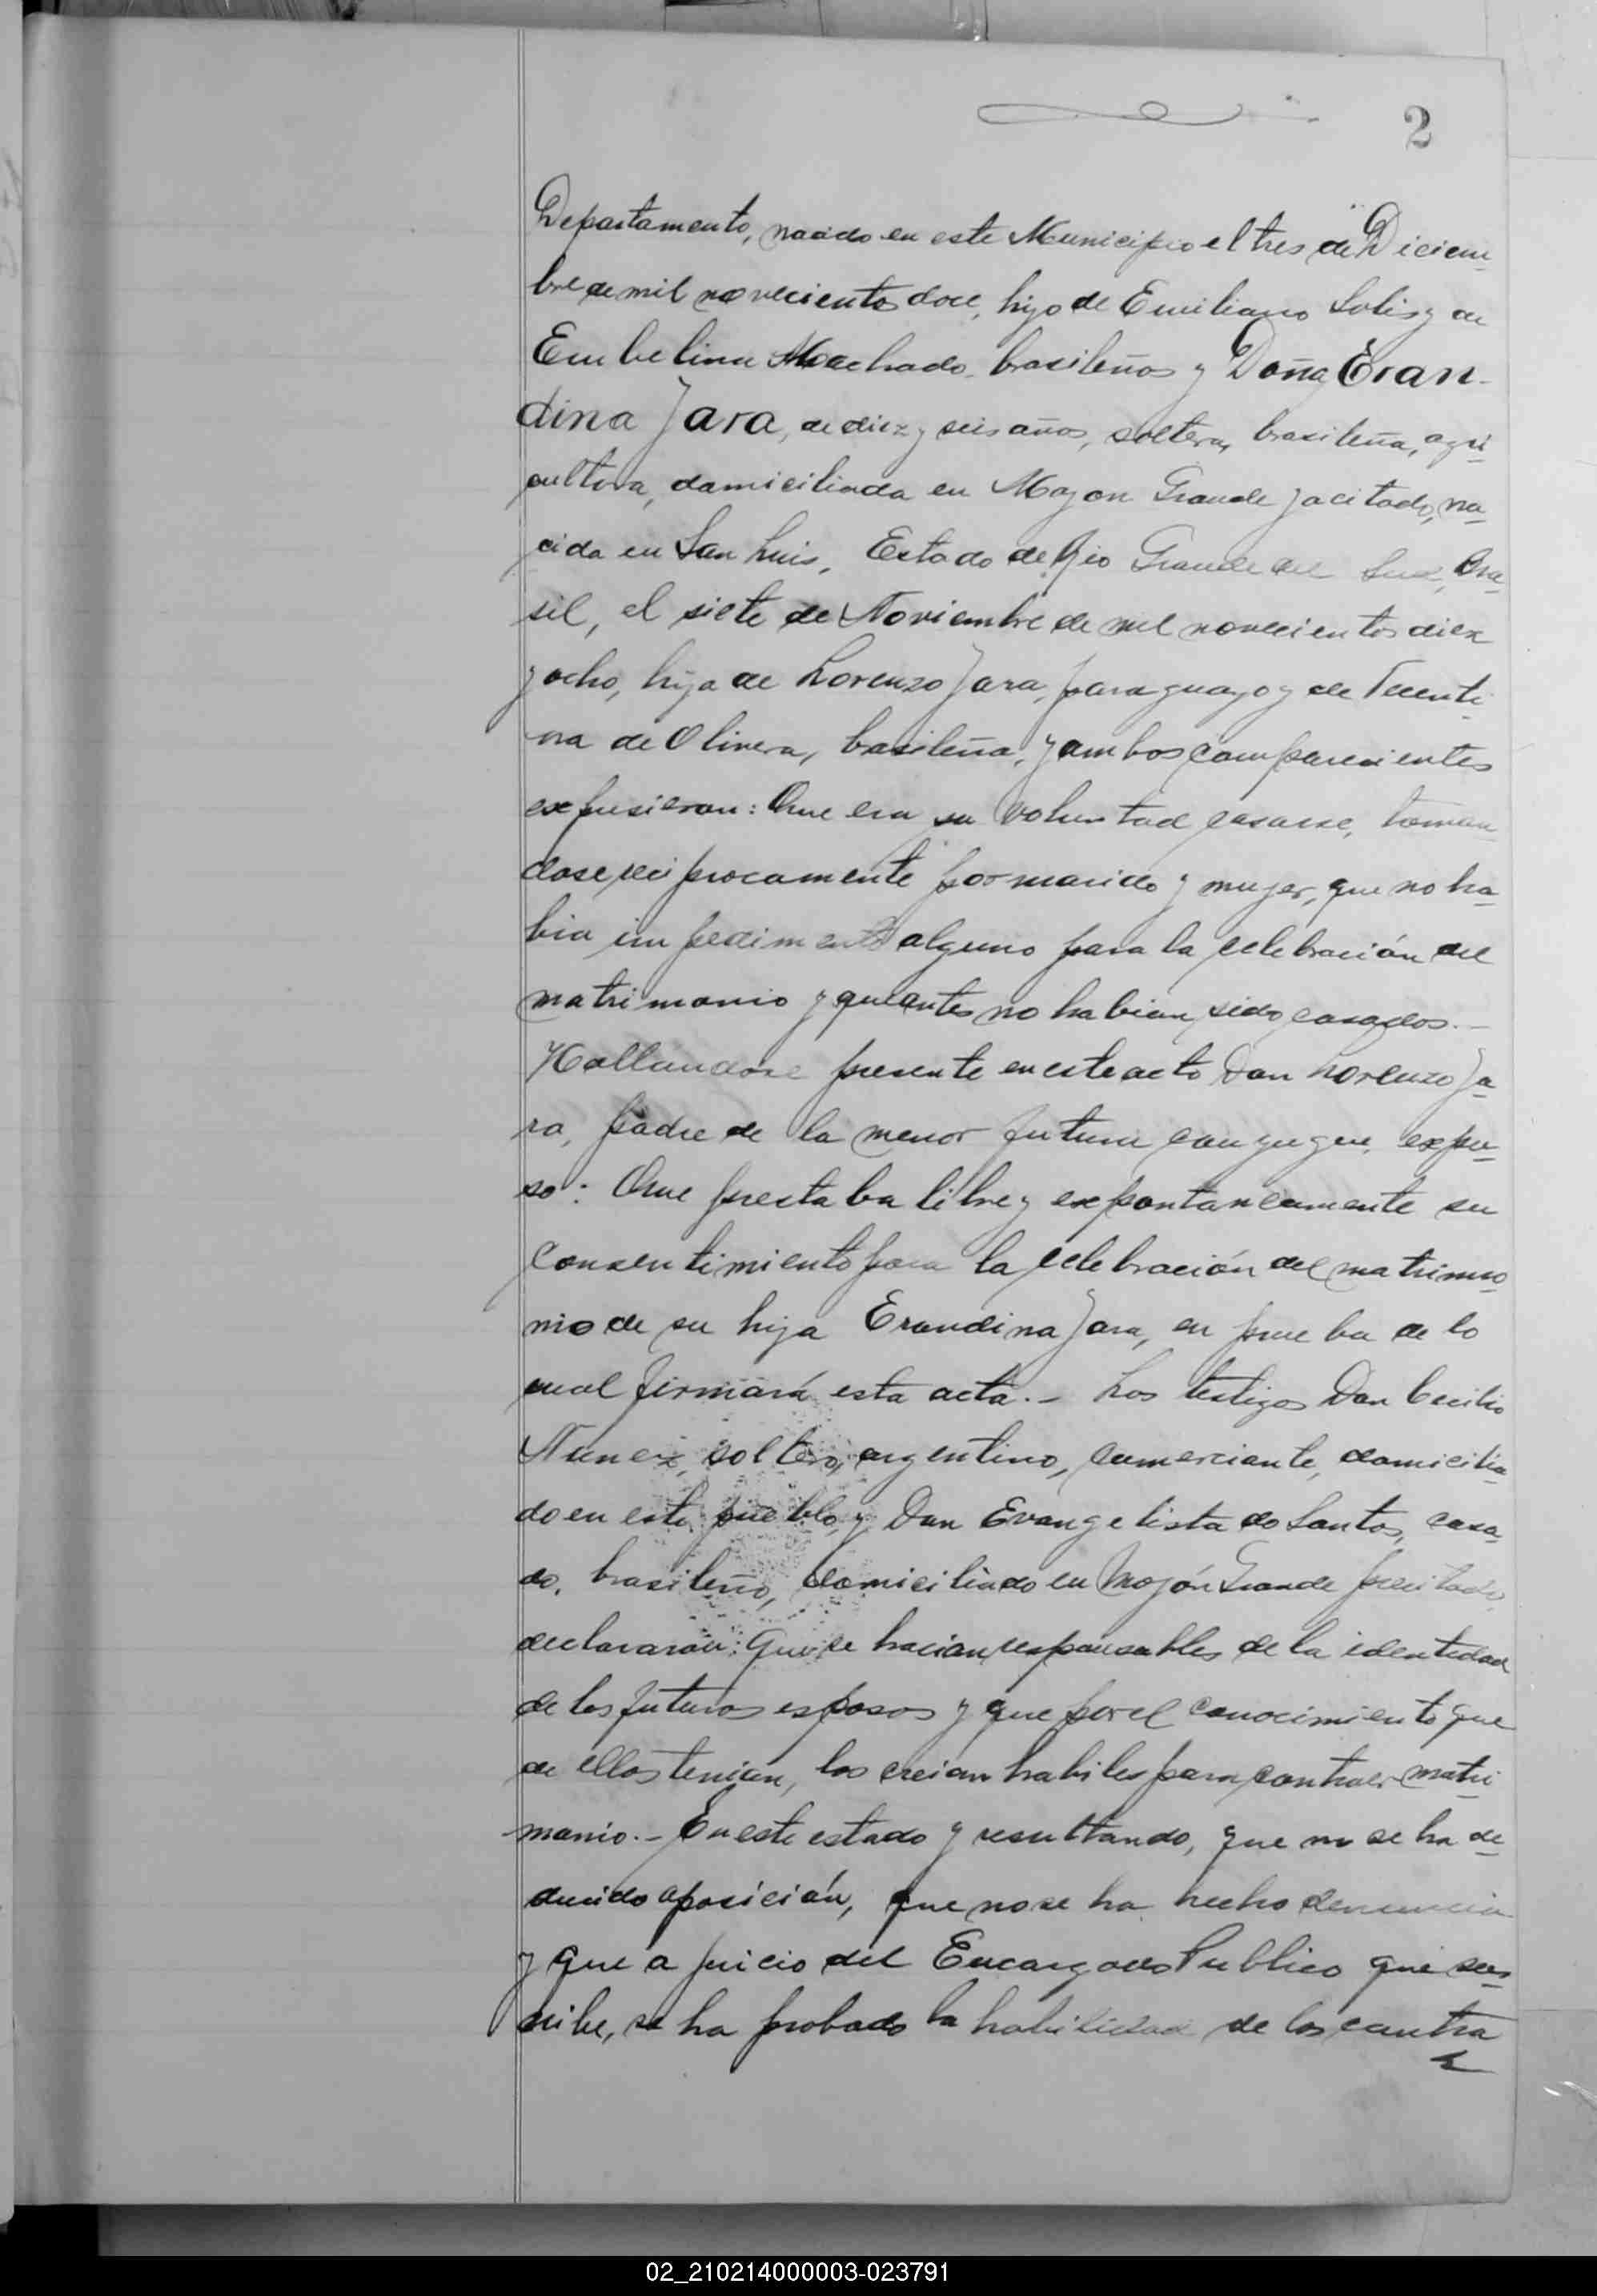 2
Departamento, nacido en este Municipio el tres de Diciem-
bre de mil novecientos doce, hijo de Emiliano Solis y de
Embelina Machado, brasileños y Doña Eran-
dina Jara, de diez y seis años, soltera, brasileña, agri-
cultora, domiciliada en Mojon Grande ya citado, na-
cida en San Luis, Estado de Rio Grande del Sur, Bra-
sil, el siete de Noviembre de mil novecientos diez
y ocho, hija de Lorenzo Jara, paraguayo y de
na de Olivera, brasileña, y ambos comparecientes
expusieron: Que era su voluntad casarse, toman
dose reciprocamente por marido y mujer, que no ha-
bia impedimento alguno para la celebración del
matrimonio y que antes no habian sido casados.-
Hallandose presente en este acto Don Lorenzo Ja-
ra, padre de la menor futura conyuge, expu-
so: Que prestaba libre y expontaneamente su
consentimiento para la celebración del matrimo-
nio de su hija Erandina Jara, en prueba de lo
cual firmará esta acta.- Los testigos Don Cecilio
Nunez, soltero, argentino, comerciante, domicilia-
do en este pueblo, y Don Evangelista do Santos, casa-
do, brasileño, domiciliado en Mojón Grande precitado,
declararon: Que se hacian responsables de la identidad
de los futuros esposos y que por el conocimiento que
de ellos tenian, los creian habiles para contraer matri-
monio.- En este estado y resultando, que no se ha de-
ducido oposición, que no se ha hecho denuncia
y que a juicio del Encargado Publico que sus-
cribe, se ha probado la habilidad de los contra
02_210214000003-023791